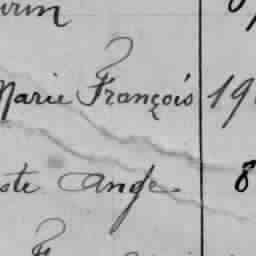 Marie François 19
ste Ange 8